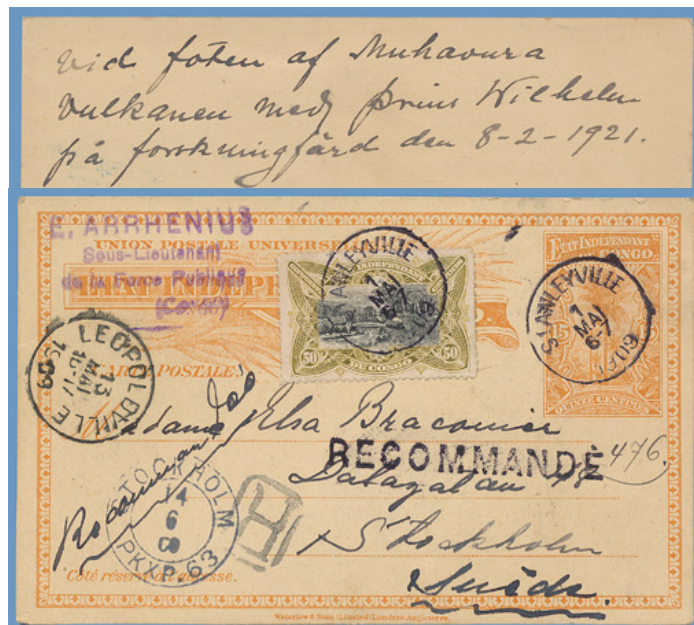 vid foten af Muhavura
vulkanen med prins Wilhelm
på forskningfärd den 8-2-1921.
E. ARRHENIUS
Sous-Lieutenant
de la Force Publique
(Congo)
UNION POSTALE UNIVERSELLE
ETAT INDEPENDANT
CONGO
INDEPENDANT
50 50
DU CONGO
STANLEYVILLE
7
MAI
6-7
1909
STANLEYVILLE
7
MAI
6-7
1909
15
QUINZE CENTIMES
LEOPOLDVILLE
13
MAI
16-17
1909
CARTE POSTALE
Madame Elsa Braconier
RECOMMANDÉ
476.
Dalagatan 48
Stockholm
Suède.
STOCKHOLM
14
6
09
PKXP. 63
R
Côté réservé à l'adresse.
Waterlow & Sons Limited, Londres, Angleterre.